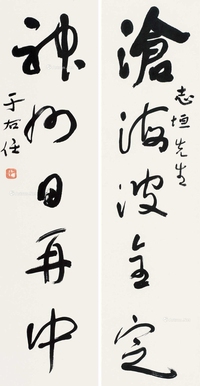 滄海波全定
志垣先生
神州日再中
于右任